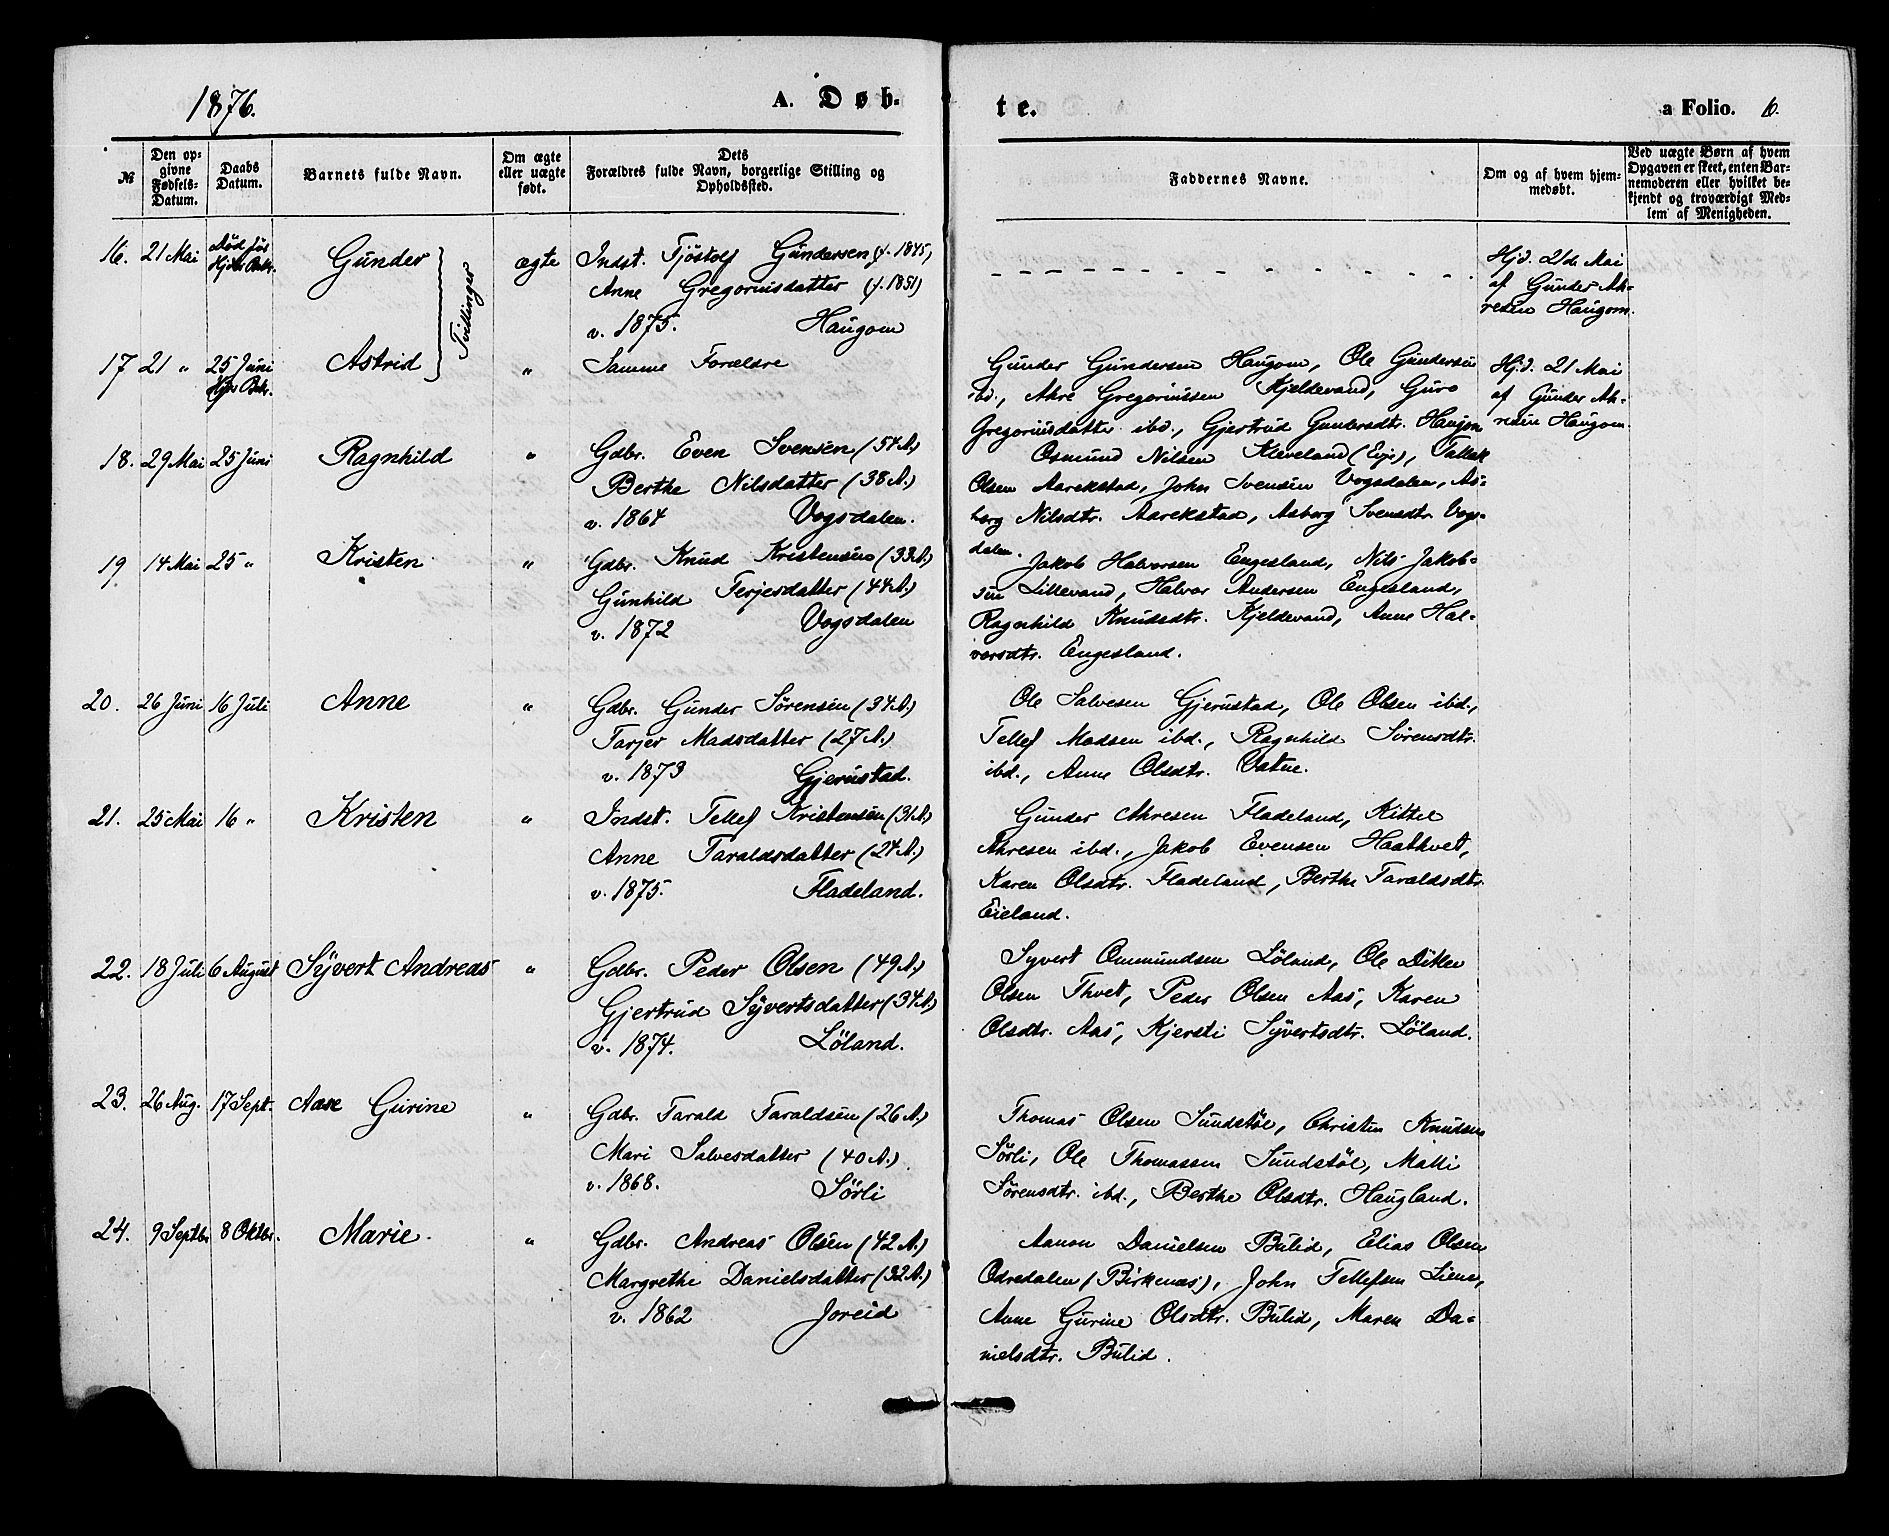 1876.
A. Døb-
te.
a Folio. 6.
№
Den opgivne Fødsels-Datum.
Daabs Datum.
Barnets fulde Navn.
Om ægte eller uægte født.
Dets Forældres fulde Navn, borgerlige Stilling og Opholdssted.
Faddernes Navne.
Om og af hvem hjemmedøbt.
Ved uægte Børn af hvem Opgaven er skeet, enten Barnemoderen eller hvilket bekjendt og troværdigt Medlem af Menigheden.
16. 21 Mai Død før Gunder ægte Indst. Tjöstolf Gundersen (f. 1845)
Anne Gregoriusdatter (f. 1851)
v. 1875. Haugom
Hjd. 21de Mai
af Gunder Ah-
resen Haugom.
Tvillinger
17 21 " 25 Juni Astrid " Samme Forældre
Gunder Gundersen Haugom, Ole Gundersen
ibd., Ahre Gregoriussen Kjeldevand, Guro
Gregoriusdatter ibd., Gjertrud Gundersdtr. Haugom
Hjd. 21 Mai
af Gunder Ah-
resen Haugom.
18. 29 Mai 25 Juni Ragnhild " Gdbr. Even Svensen (54 A.)
Berthe Nilsdatter (38 A.)
v. 1864 Vogsdalen.
Osmund Nilsen Kleveland (Evje), Tallak
Olsen Aarekstad, John Svensen Vogsdalen, As-
berg Nilsdtr. Aarekstad, Asberg Svensdtr. Vogs-
dalen.
19 14 Mai 25 " Kristen " Gdbr. Knud Kristensen (33 A.)
Gunhild Terjesdatter (44 A.)
v. 1872 Vogsdalen
Jakob Halvorsen Engesland, Nils Jakob-
sen Lillevand, Halvor Andersen Engesland,
Ragnhild Knudsdtr. Kjeldevand, Anne Hal-
vorsdtr. Engesland.
20. 26 Juni 16 Juli Anne " Gdbr. Gunder Sörensen (34 A.)
Tarjer Madsdatter (27 A.)
v. 1873 Gjerustad.
Ole Salvesen Gjerustad, Ole Olsen ibd.,
Tellef Madsen ibd., Ragnhild Sörensdtr.
ibd., Anne Olsdtr. Vatne.
21. 25 Mai 16 " Kristen " Indst. Tellef Kristensen (31 A.)
Anne Taraldsdatter (24 A.)
v. 1875. Fladeland.
Gunder Ahresen Fladeland, Kittel
Ahresen ibd., Jakob Evensen Haathvet,
Karen Olsdtr. Fladeland, Berthe Taraldsdtr.
Eieland.
22. 18 Juli 6 August Syvert Andreas " Gdbr. Peder Olsen (49 A.)
Gjertrud Syvertsdatter (34 A.)
v. 1874. Löland.
Syvert Ommundsen Löland, Ole Ditlev
Olsen Thvet, Peder Olsen Aas, Karen
Olsdtr. Aas, Kjersti Syvertsdtr. Löland.
23. 26 Aug. 17 Sept. Aase Gurine " Gdbr. Tarald Taraldsen (26 A.)
Mari Salvesdatter (40 A.)
v. 1868. Sörli
Thomas Olsen Sundstöl, Christen Knudsen
Sörli, Ole Thomassen Sundstöl, Malli
Sörensdtr. ibd., Berthe Olsdtr. Haugland.
24. 9 Septbr 8 Oktbr. Marie. " Gdbr. Andreas Olsen (42 A.)
Margrethe Danielsdatter (32 A.)
v. 1862 Joreid
Aanon Danielsen Bulid, Elias Olsen
Odredalen (Birkenæs), John Tellefsen Liene,
Anne Gurine Olsdtr. Bulid, Maren Da-
nielsdtr. Bulid.